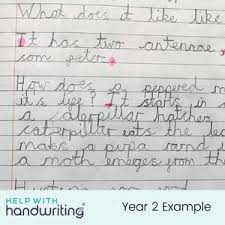 What does it like like
It has two antennae
som peters
How does a peppered m
it's life? It starts in
a caterpillar hatches
caterpillar eats the lea
makes a pupa round i
a moth emeges from th
HELP WITH
handwriting®
Year 2 Example